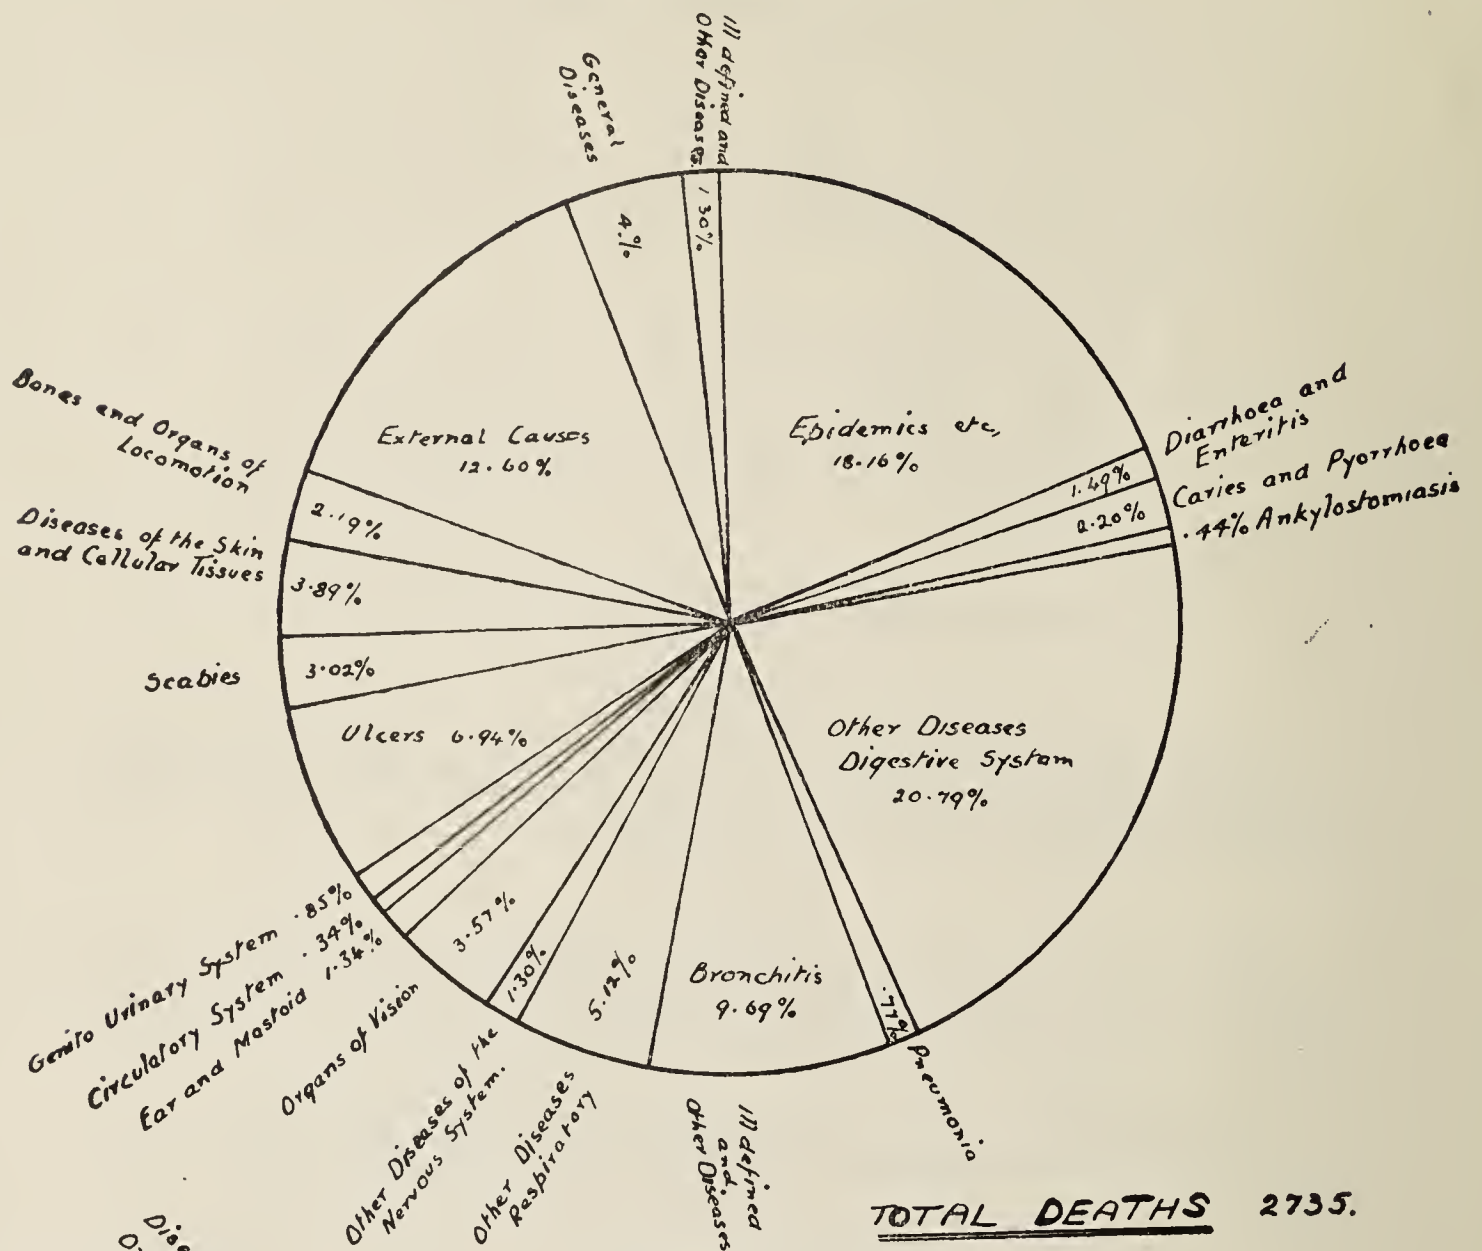 Ill defined and
Other Diseases.
1.30%
General
Diseases
4.%
Epidemics etc,
18.16%
Diarrhoea and
Enteritis
1.49%
Caries and Pyorrhoea
2.20%
.44% Ankylostomiasis
Other Diseases
Digestive System
20.79%
.77%
Pneumonia
Bronchitis
9.69%
5.12%
Other Diseases
Respiratory
1.30%
Other Diseases of the
Nervous System.
3.57%
Organs of Vision
Ear and Mastoid 1.34%
Circulatory System .34%
Genito Urinary System .85%
Ulcers 6.94%
Scabies
3.02%
Diseases of the Skin
and Cellular Tissues
3.89%
Bones and Organs of
Locomotion
2.19%
External Causes
12.60%
Ill defined
and,
Other Diseases
TOTAL DEATHS 2735.